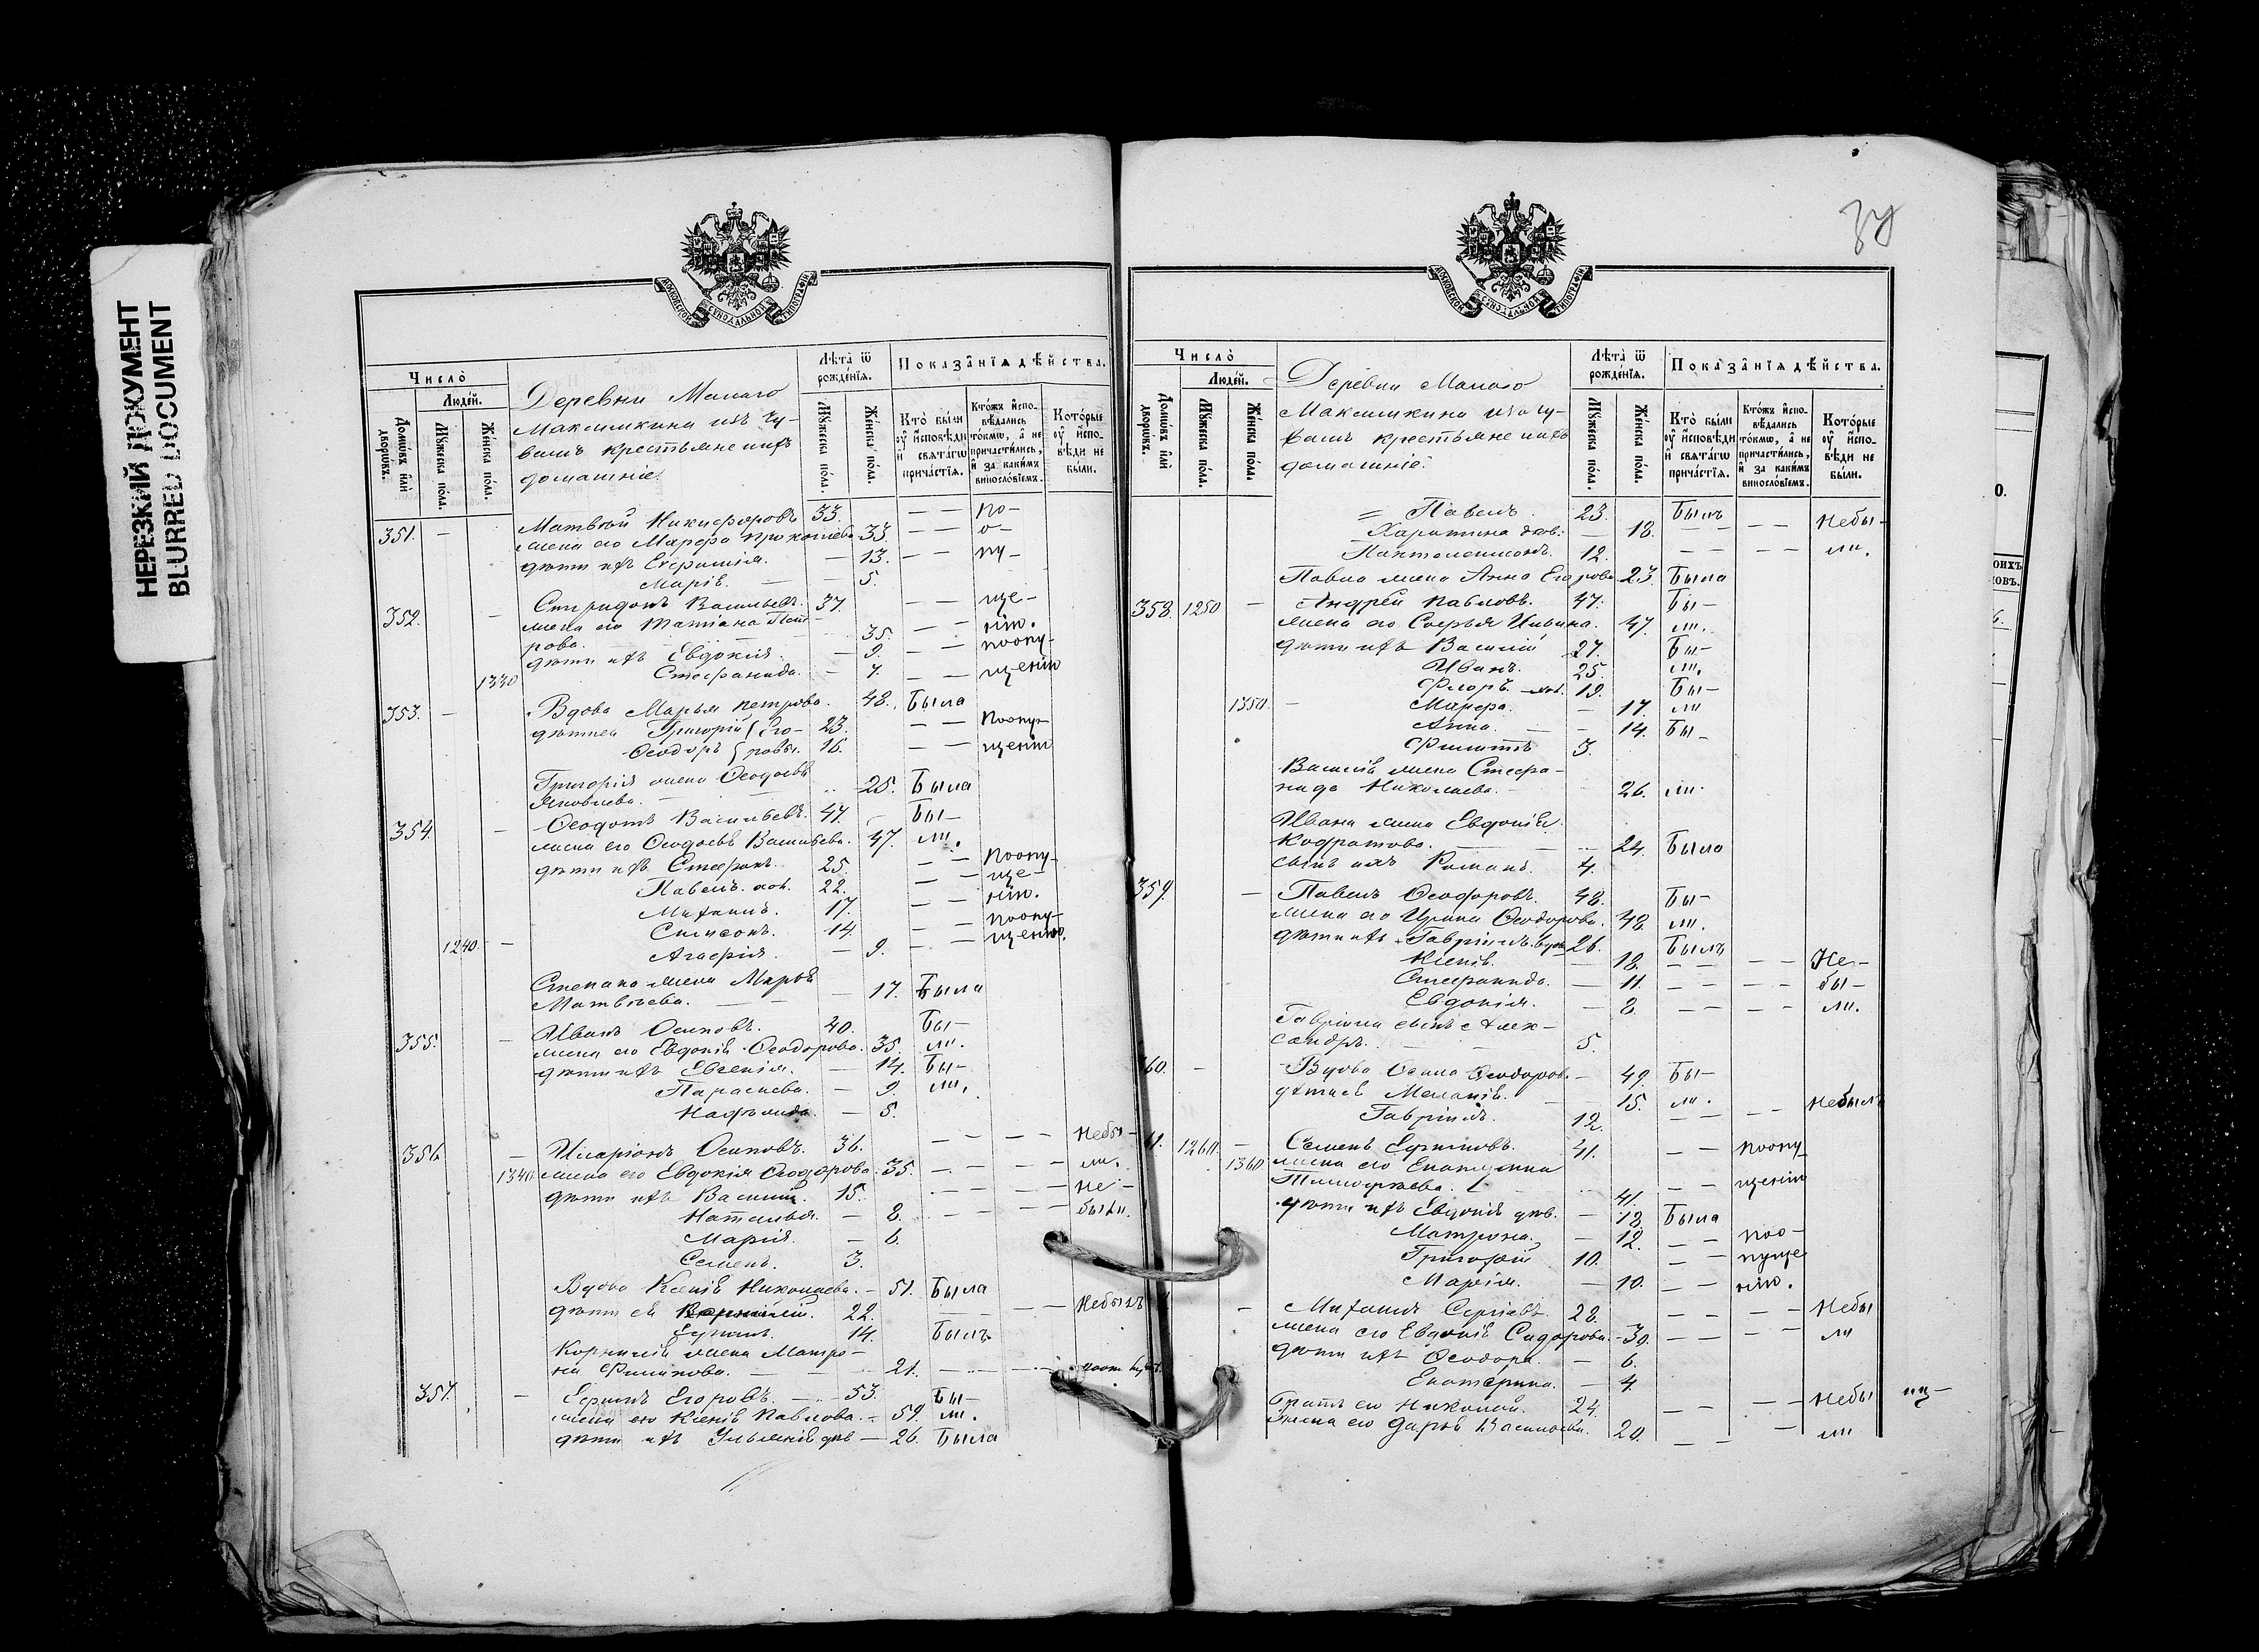 НЕРЕЗКИЙ ДОКУМЕНТ
BLURRED DOCUMENT
МОСКОВСКОЙ СѴНОДАЛЬНОЙ ТИПОГРАФІИ
Число̀
Домѡвъ и҆лѝ дворѡвъ.
Люде́й.
Мꙋ́жеска по́ла.
Же́нска по́ла.
Деревни Малаго
Максимкина изъ Чу-
вашъ крестьяне ихъ
домашніе.
Лѣта̀ ѿ рожде́нїѧ.
Мꙋ́жеска по́ла.
Же́нска по́ла.
Показа̂нїѧ дѣ́йства.
Кто̀ бы́ли оу҆ и҆сповѣ́ди и҆ свѧта́гѡ прича́стїѧ.
Кто́жъ и҆спо-вѣ́дались то́кмѡ, а҆ не причасти́лись, и҆ за каки́мъ винослові́емъ.
Кото́рые оу҆ и҆спо-вѣ́ди не бы́ли.
351. — Матвѣй Никифоровъ 33. — — по-
жена его Марѳа Прокопьева 33. — — о-
дѣти ихъ Ефимія. — 13. — — пу-
Марія. — — 5.
352. — Спиридонъ Васильевъ. 37. — — ще-
жена его Татіана Пет-
рова. 35. — — нію.
дѣти ихъ Евдокія. — 9. — — поопу-
1330 Стефанида. — 7. — — щенію
353. — Вдова Марья Петрова. 48. Была
дѣти ея Григорій Его- 23. — — Поопу-
Ѳеодоръ ровы. 16. — — щенію
Григорія жена Ѳеодосія
Яковлева. — — 25. Была
354. — Ѳеодотъ Васильевъ. 47. Бы-
жена его Ѳеодосія Васильева. 47. ли.
дѣти ихъ Стефанъ. 25. — — Поопу-
Павелъ. 22. — — ще-
Михаилъ. 17. — — нію.
Симеонъ. 14. — — поопу-
1240. — Агафія. — 9. — — щенію.
Степана жена Марья
Матвѣева. — — 17. Была
355. — Иванъ Осиповъ. 40. Бы-
жена его Евдокія Ѳеодорова. 35. ли.
дѣти ихъ Евгенія. — 14. Бы-
Параскева. — 9. ли.
— 5.
356. — Иларіонъ Осиповъ. 36. — — — Небы-
1340. жена его Евдокія Ѳеодорова. 35. — — — ли.
дѣти ихъ Василій. 15. — — — Не-
Наталья. — 8. — — — были.
Марія. — 6.
Семенъ. 3.
Вдова Ксенія Николаева. — 51. Была
дѣти ея 22. — — Небылъ
14. Былъ
Корнилія жена Матро-
на Филипова. — — 21. — — —
357. — Ефимъ Егоровъ. — 53. Бы-
жена его Ксенія Павлова. — 59. ли.
дѣти ихъ Ульянія дѣв — 26. Была
Число̀
Домѡвъ и҆лѝ дворѡвъ.
Люде́й.
Мꙋ́жеска по́ла.
Же́нска по́ла.
Деревни Малаго
Максимкина изъ Чу-
вашъ крестьяне ихъ
домашніе.
Лѣта̀ ѿ рожде́нїѧ.
Мꙋ́жеска по́ла.
Же́нска по́ла.
Показа̂нїѧ дѣ́йства.
Кто̀ бы́ли оу҆ и҆сповѣ́ди и҆ свѧта́гѡ прича́стїѧ.
Кто́жъ и҆спо-вѣ́дались то́кмѡ, а҆ не причасти́лись, и҆ за каки́мъ винослові́емъ.
Кото́рые оу҆ и҆спо-вѣ́ди не бы́ли.
= Павелъ. 23. Былъ
Харитина дѣв. — 18. — — — — Небы-
Пантелеимонъ. 12. — — — — ли.
Павла жена Анна Егорова 23. Была
358. 1250 — Андрей Павловъ. 47. Бы-
жена его Софья Ильина. 47. ли.
дѣти ихъ Василій 27. Бы-
Иванъ. 25. ли.
Флоръ. 19. Бы-
1350. — Марѳа. — 17. ли
Анна. — — 14. Бы-
Филиппъ 3.
Василія жена Стефа-
нида Николаева. — 26. ли.
Ивана жена Евдокія
Кодратова. — — 24. Была
сынъ ихъ Романъ. 4.
359. — Павелъ Ѳеодоровъ. 48. Бы-
жена его Ирина Ѳеодорова. 48. ли.
дѣти ихъ Гавріилъ. вдов. 26. Былъ
Ксенія. — 18. — — — — Не-
Стефанида. — 11. — — — — бы-
Евдокія. — 8. — — — — ли.
Гавріила сынъ Алек-
сандръ. — — 5.
60. — Вдова Ѳеодоров. — 49. Бы-
дѣти ея Меланія. — 15. ли.
Гавріилъ. 12. — — Небылъ
61. 1260. — Семенъ Ефимовъ. 41. — — поопу
1360 жена его Екатерина
Тимоѳеева. 41. — — щенію
дѣти ихъ Евдокія дѣв. — 18. Была
Матрона, — 12. — — поо-
Григорій 10. — — пуще
Марія. — 10. — — нію.
— Михаилъ Сергіевъ. 28. — — — — Небы
жена его Евдокія Сидорова. — 30. — — — — ли
дѣти ихъ Ѳеодора. — 6.
Екатерина. — 4.
Братъ его Николай. 24. — — — — Небы
жена его Дарья Васильева. 20. — — — ли